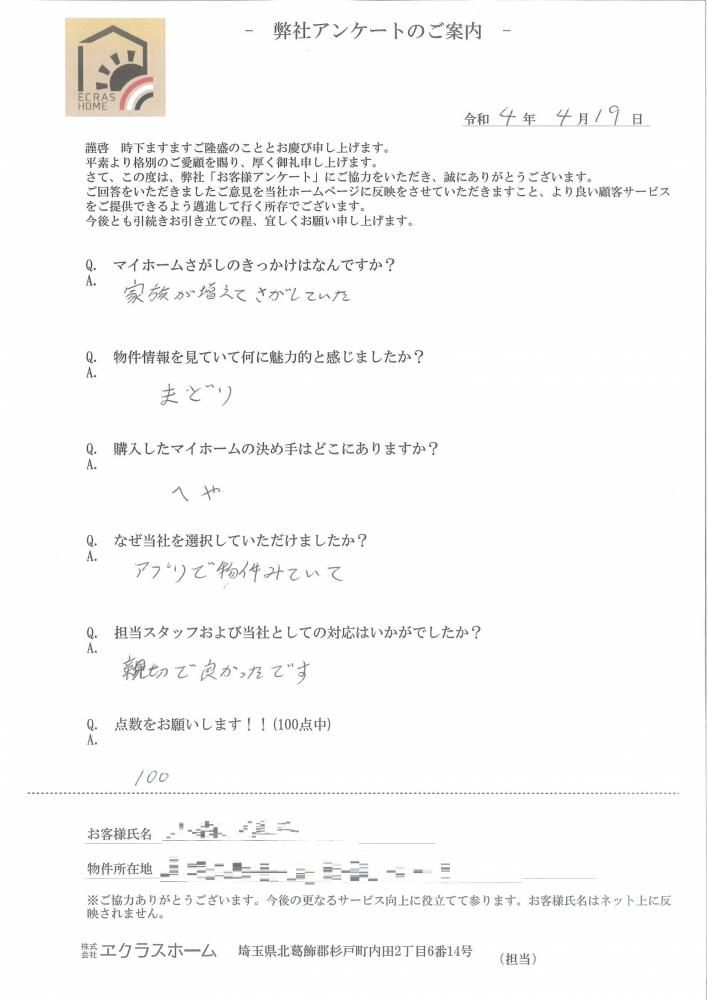 - 弊社アンケートのご案内 -
ECRAS
HOME
令和 4 年 4 月 19 日
謹啓 時下ますますご隆盛のこととお慶び申し上げます。
平素より格別のご愛顧を賜り、厚く御礼申し上げます。
さて、この度は、弊社「お客様アンケート」にご協力をいただき、誠にありがとうございます。
ご回答をいただきましたご意見を当社ホームページに反映をさせていただきますこと、より良い顧客サービス
をご提供できるよう邁進して行く所存でございます。
今後とも引続きお引き立ての程、宜しくお願い申し上げます。
Q. マイホームさがしのきっかけはなんですか？
A.
家族が増えてさがしていた
Q. 物件情報を見ていて何に魅力的と感じましたか？
A.
まどり
Q. 購入したマイホームの決め手はどこにありますか？
A.
へや
Q. なぜ当社を選択していただけましたか？
A.
アプリで物件みていて
Q. 担当スタッフおよび当社としての対応はいかがでしたか？
A.
親切で良かったです
Q. 点数をお願いします！！(100点中)
A.
100
お客様氏名
物件所在地
※ご協力ありがとうございます。今後の更なるサービス向上に役立てて参ります。お客様氏名はネット上に反
映されません。
株式会社 ヱクラスホーム 埼玉県北葛飾郡杉戸町内田2丁目6番14号 （担当）